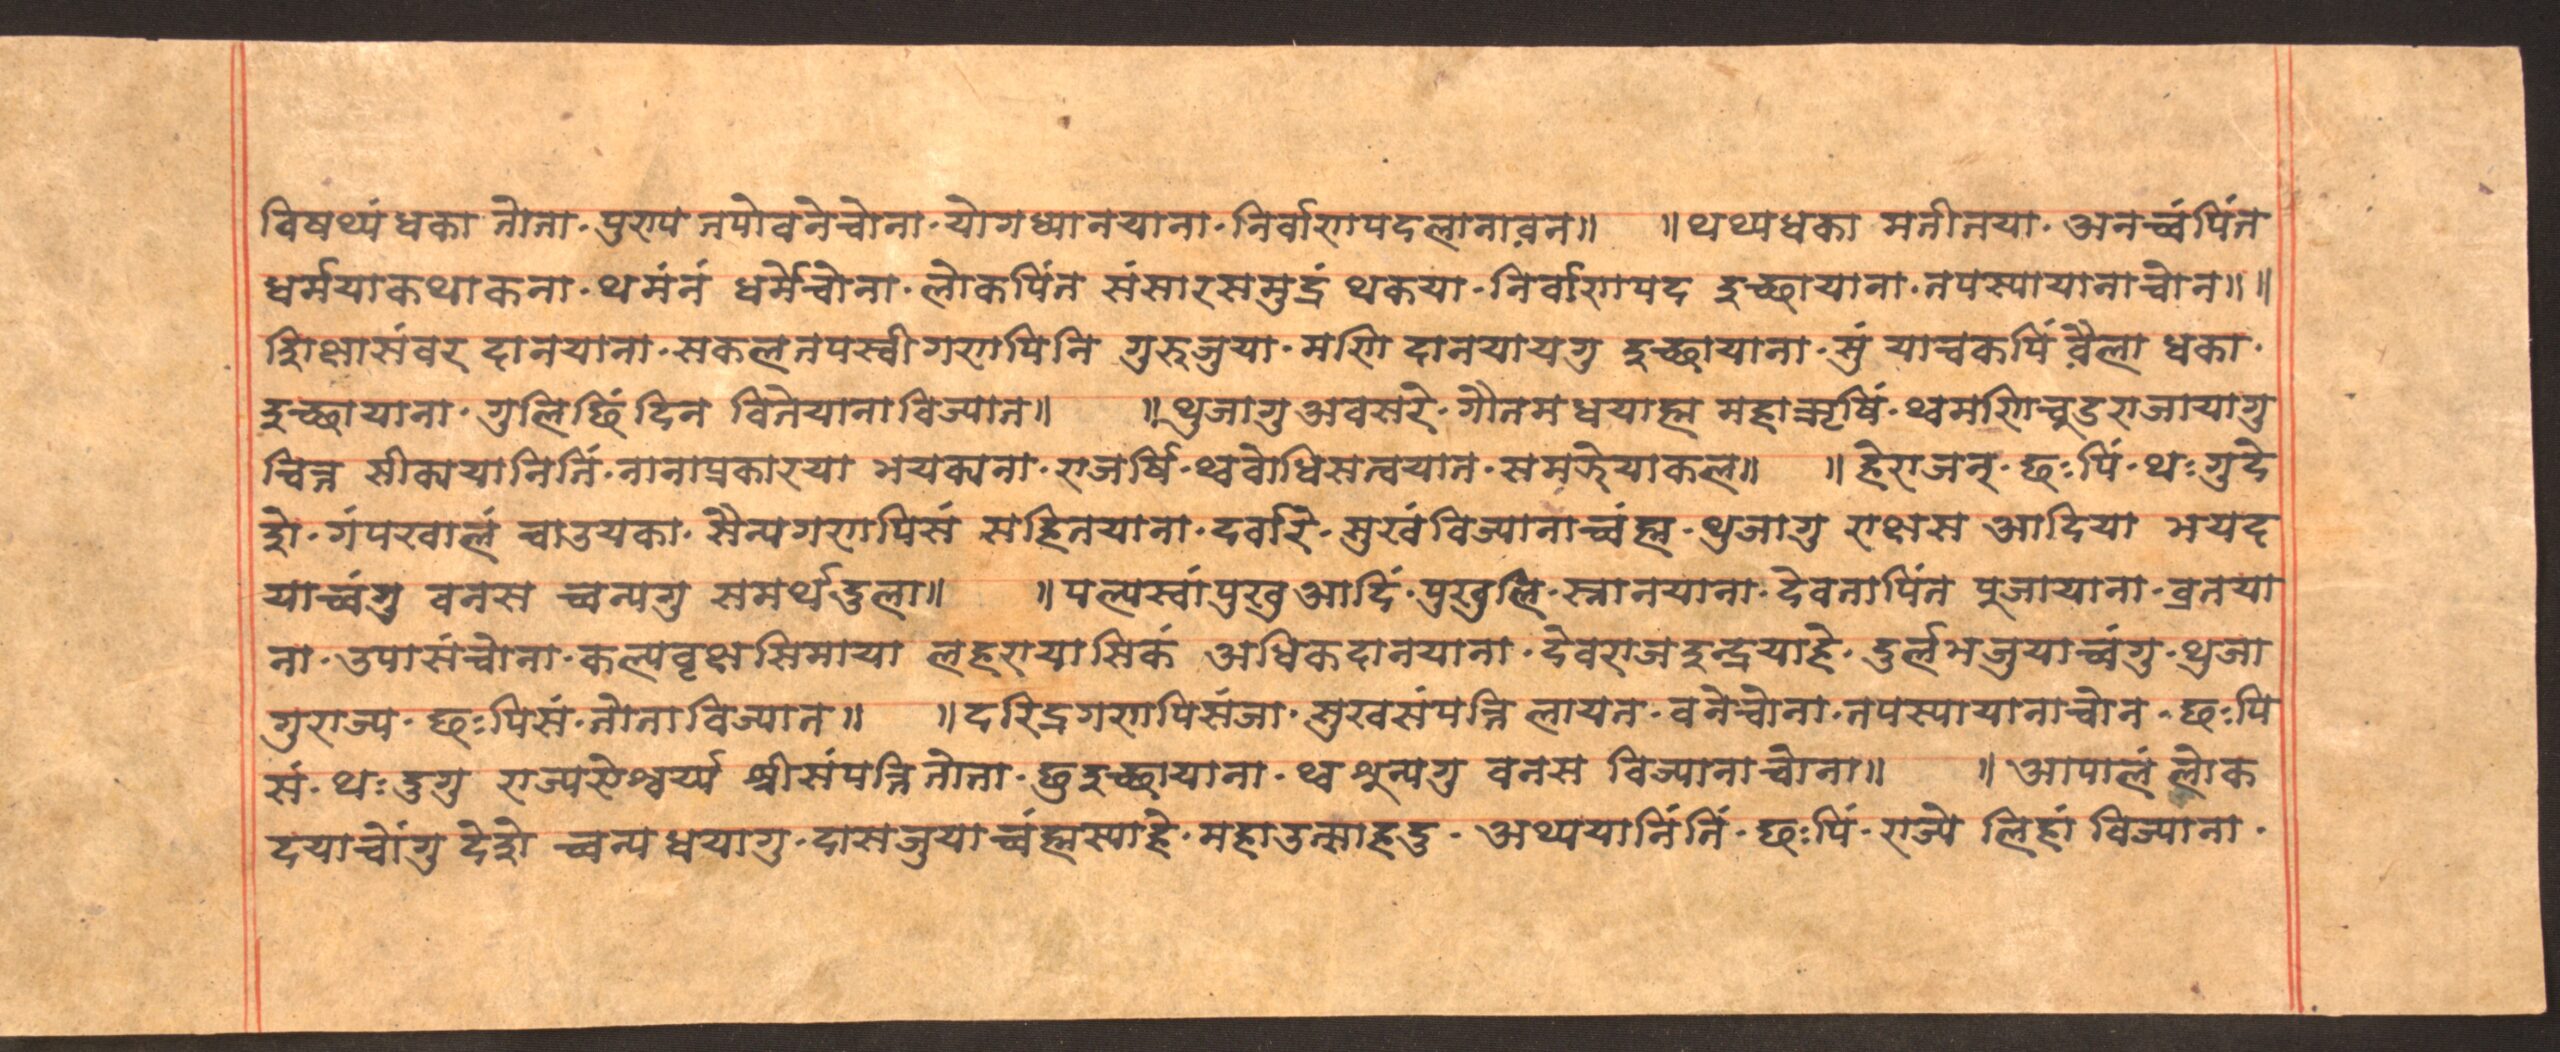 विषथ्यं धका तोता· पुराप तपोवनेचोना· योगध्यानयाना· निर्वाणपदलानाव़न॥ ॥थथ्यधका मतीतया· अनच्वंपिंत
धर्मयाकथाकना· थमंनं धर्मेचोना· लोकपिंत संसारसमुद्रं थकया· निर्वाणपद इच्छायाना· तपस्यायानाचोन॥॥
शिक्षासंवर दानयाना· सकलतपस्वीगणपिनि गुरुजुया· मणि दानयायगु इच्छायाना· सुं याचकपिं व़ैला धका·
इच्छायाना· गुलिछिं दिन वितेयानाविज्यात॥ ॥थुजागुअवसरे· गौतमधयाह्म महाऋषिं· थ्वमणिचुडराजायागु
चित्त सीकायानिंतिं· नानाप्रकारया भयक्यना· राजर्षि· थ्ववोधिसत्वयात· समझेयाकल॥ ॥हेराजन्· छःपिं· थःगुदे
शे· गंपरवालं चाउयका· सैन्यगणपिसं सहितयाना· दर्वारे· सुखंविज्यानाच्वंह्म· थुजागु राक्षस आदिया भयद
याच्वंगु वनस च्वन्यगु समर्थदुला॥ ॥पल्यस्वांपुखुआदिं· पुखुलि· स्नानयाना· देवतापिंत पुजायाना· व्रतया
ना· उपासंचोना· कल्पवृक्षसिमाया लहरायासिकं अधिकदानयाना· देवराजइन्द्रयाहे· दुर्लभजुयाच्वंगु· थुजा
गुराज्य· छःपिसं· तोताविज्यात॥ ॥दरिद्रगणपिसंजा· सुखसंपत्ति लायत· वनेचोना· तपस्यायानाचोन· छःपि
सं· थःदुगु राज्यऐश्वर्य्य श्रीसंपत्तितोता· छुइच्छायाना· थ्व शून्यगु वनस विज्यानाचोना॥ ॥आपालं लोक
दयाचोंगु देशे च्वन्यधयागु· दासजुयाच्वंह्मस्याहे· महाउत्साहदु· अथ्ययानिंतिं· छःपिं· राज्ये लिहां विज्याना·